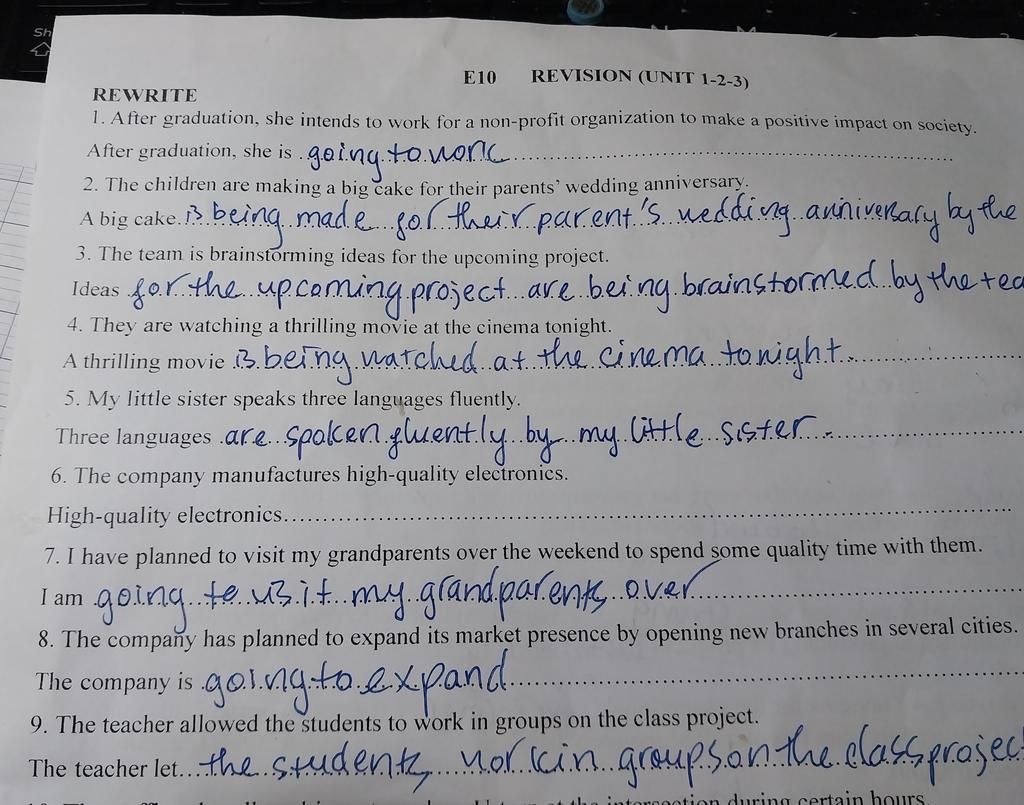 Sh
E10 REVISION (UNIT 1-2-3)
REWRITE
1. After graduation, she intends to work for a non-profit organization to make a positive impact on society.
After graduation, she is going to work
2. The children are making a big cake for their parents’ wedding anniversary.
A big cake is being made for their parent's wedding anniversary by the
3. The team is brainstorming ideas for the upcoming project.
Ideas for the upcoming project are being brainstormed by the tea
4. They are watching a thrilling movie at the cinema tonight.
A thrilling movie is being watched at the cinema tonight.
5. My little sister speaks three languages fluently.
Three languages are spoken fluently by my little sister.
6. The company manufactures high-quality electronics.
High-quality electronics
7. I have planned to visit my grandparents over the weekend to spend some quality time with them.
I am going to visit my grandparents over
8. The company has planned to expand its market presence by opening new branches in several cities.
The company is going to expand
9. The teacher allowed the students to work in groups on the class project.
The teacher let the students work in groups on the class project
intersection during certain hours.